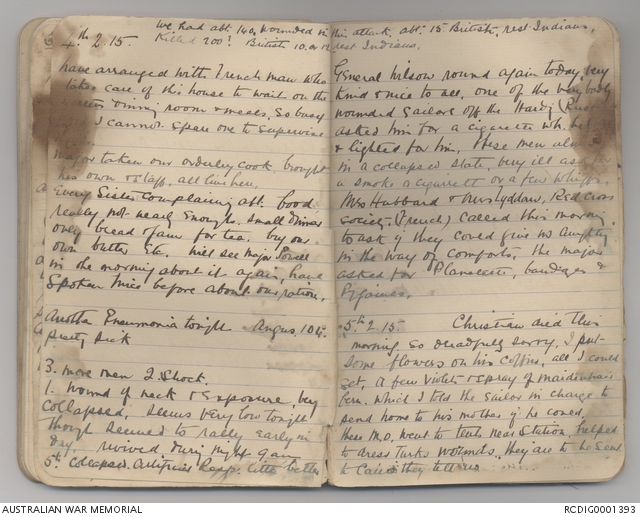 4th. 2. 15. we had abt. 140 wounded in this attack, abt. 15 British, rest Indians,
Killed 200? British 10. or 12 rest Indians.
have arranged with French man who
takes care of this house to wait on the
dining room & meals. So busy
I cannot spare one to supervise
Major taken our orderly cook, brought
his own staff. all linchen.
Every Sister complaining abt. food
really not nearly enough, small dinner
only bread & jam for tea. buy our
own butter etc. will see Major Powell
in the morning about it again, have
spoken twice before about our ration.
Another Pneumonia tonight Angus. 104.
pretty sick
3. more men 2 Shock.
1. wound of neck & Exposure, very
collapsed. seems very low tonight
though seemed to rally early in
day. revived during night again
5th collapsed. Artificial Resp. little better
General Wilson round again today, very
kind & nice to all, one of the very badly
wounded Sailors off the Hardy
asked him for a cigarette wh. he
& lighted for him. These men
in a collapsed state, very ill ask for
a smoke a cigarette or a few whiffs.
Mrs Hubbard & Red Cross
Society. (French) called this morning
to ask if they could give us anything
in the way of comforts. The major
asked for Flanelette, bandages &
Pyjamas.
5th 2. 15. Christian died this
morning, so dreadfully sorry, I put
some flowers on his coffin, all I could
get, a few violets & a spray of maidenhair
fern. which I told the sailor in charge to
send home to his mother if he could,
these M.O. went to tents near Station, helped
to dress Turks wounds. they are to be sent
to Cairo they tell us
AUSTRALIAN WAR MEMORIAL
RCDIG0001393